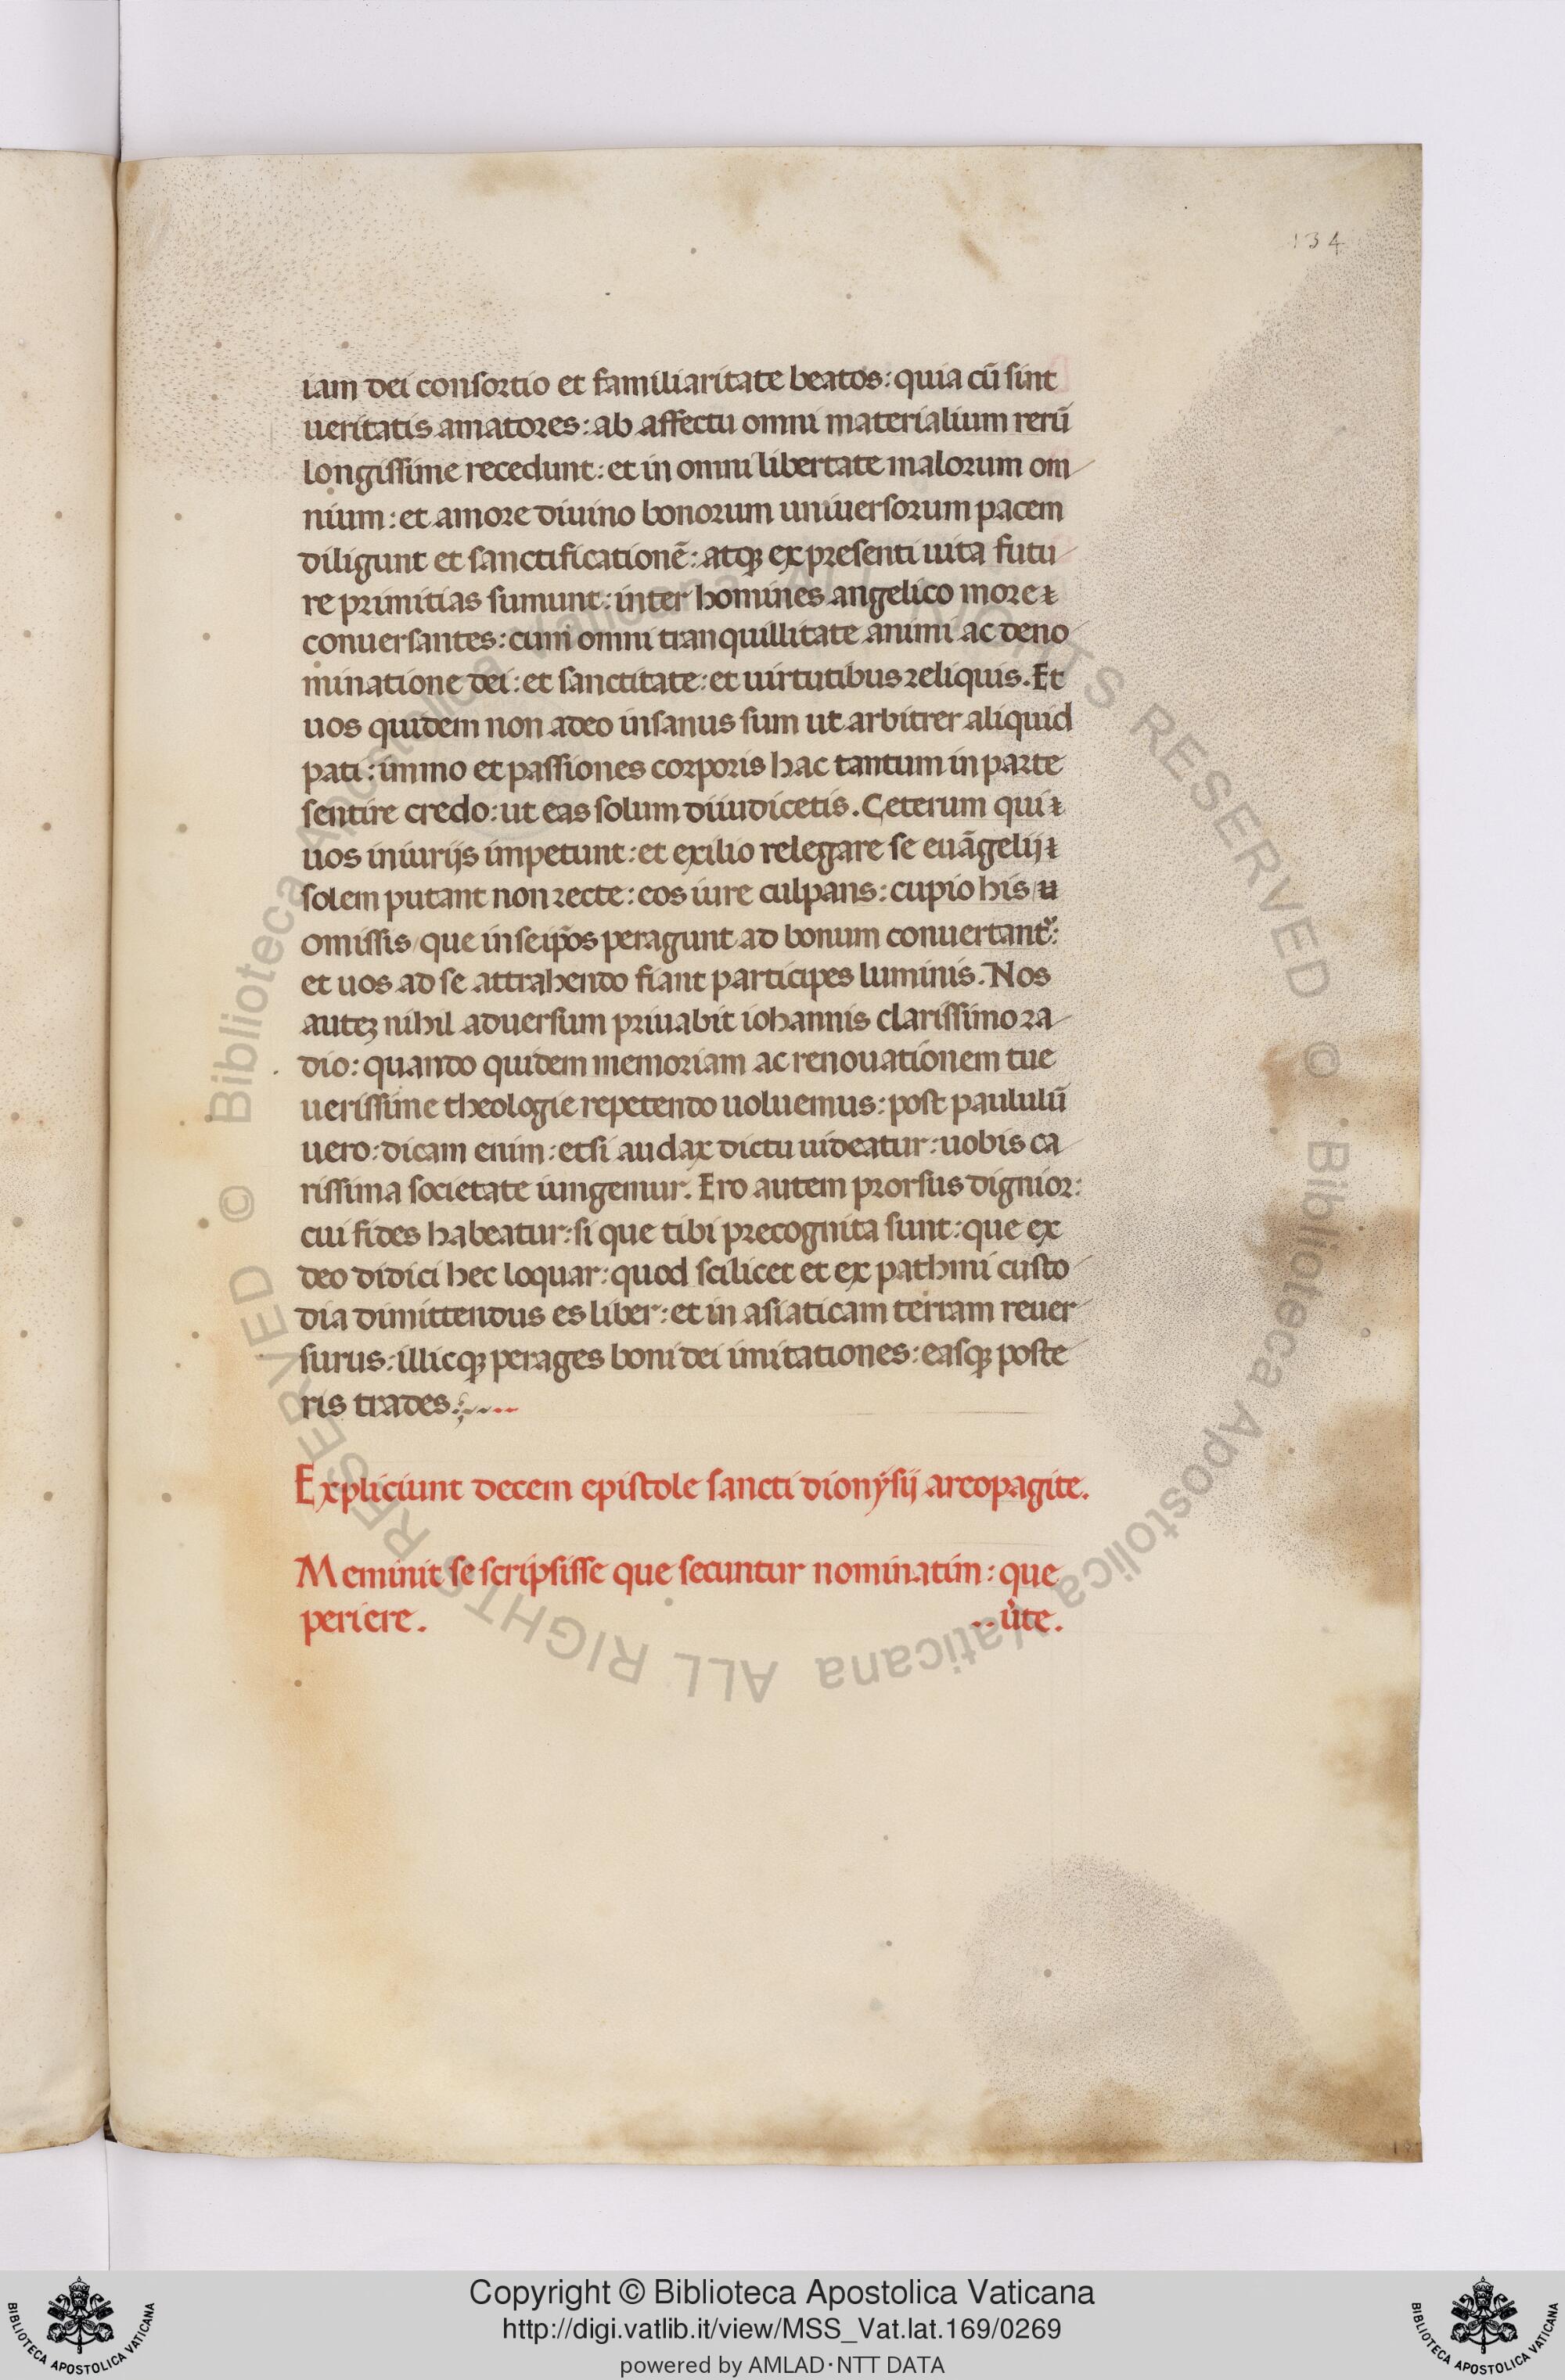 134
iam dei consortio et familiaritate beatos: quia cū sint
ueritatis amatores: ab affectu omni materialium rerū
longissime recedunt: et in omni libertate malorum om
nium: et amore diuino bonorum uniuersorum pacem
diligunt et sanctificationē: atqꝫ ex presenti uita futu
re primitias sumunt: inter homines angelico more
conuersantes: cum omni tranquillitate animi ac deno
minatione dei: et sanctitate: et uirtutibus reliquis. Et
uos quidem non adeo insanus sum ut arbitrer aliquid
pati: immo et passiones corporis hac tantum in parte
sentire credo: ut eas solum diiudicetis. Ceterum qui
uos iniurijs impetunt: et exilio relegare se euāgelij
solem putant non recte: eos iure culpans: cupio his
omissis/que in seip̄os peragunt ad bonum conuertant᷑:
et uos ad se attrahendo fiant participes luminis. Nos
auteꝫ nihil aduersum priuabit iohannis clarissimo ra
dio: quando quidem memoriam ac renouationem tue
uerissime theologie repetendo uoluemus: post paululū
uero: dicam enim: etsi audax dictu uideatur: uobis ca
rissima societate iungemur. Ero autem prorsus dignior:
cui fides habeatur: si que tibi precognita sunt: que ex
deo didici hec loquar: quod scilicet et ex pathmi custo
dia dimittendus es liber: et in asiaticam terram reuer
surus: illicqꝫ perages boni dei imitationes: easqꝫ poste
ris trades:
Expliciunt decem epistole sancti dionẏsij areopagite.
Meminit se scripsisse que secuntur nominatim: que
periere. ..ùte.
© Biblioteca Apostolica Vaticana ALL RIGHTS RESERVED © Biblioteca Apostolica Vaticana ALL RIGHTS RESERVED
Copyright © Biblioteca Apostolica Vaticana
http://digi.vatlib.it/view/MSS_Vat.lat.169/0269
powered by AMLAD·NTT DATA
BIBLIOTECA APOSTOLICA VATICANA
BIBLIOTECA APOSTOLICA VATICANA